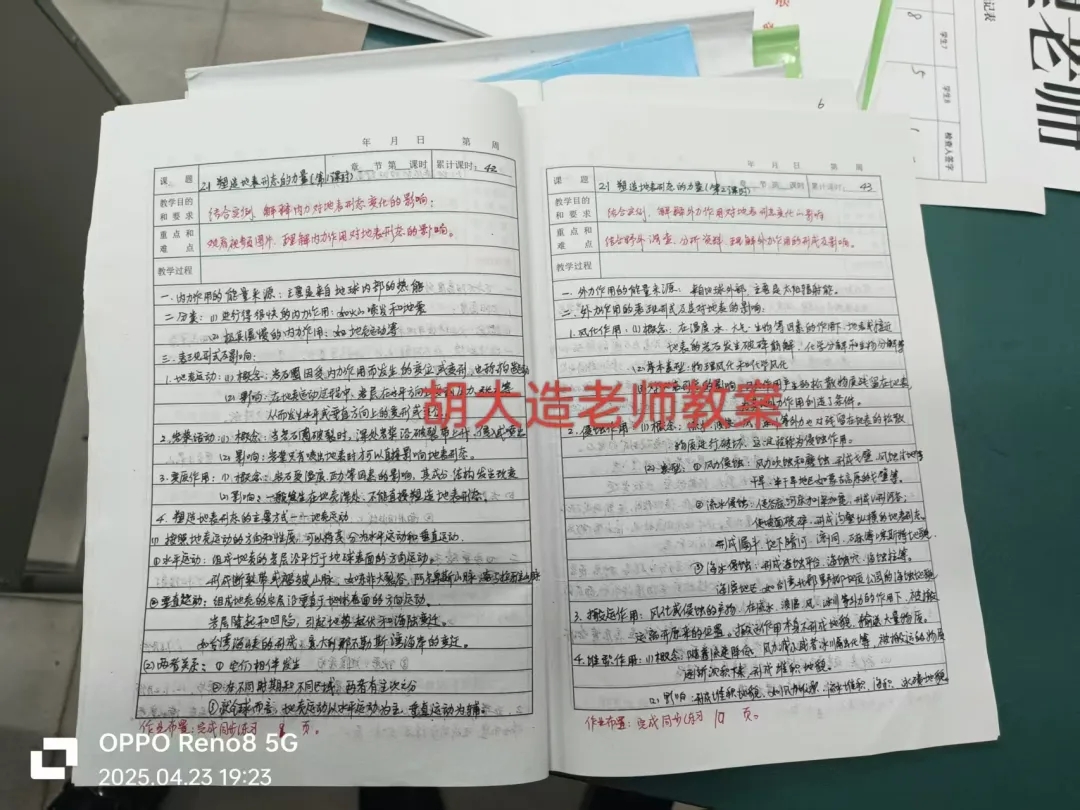 记表
学生7
学生8
检查人签字
8
5
老师
6
年 月 日 第 周
课 题 2.1 塑造地表形态的力量(第1课时) 章 节 第 课时 累计课时: 42
教学目的和要求 结合实例,解释内力对地表形态变化的影响;
重点和难点 观看视频图片,理解内力作用对地表形态的影响。
教学过程
一.内力作用的能量来源:主要是来自地球内部的热能
二.分类:(1)进行得很快的内力作用:如火山喷发和地震
(2)极其缓慢的内力作用:如地壳运动等
三.表现形式及影响:
1.地壳运动:(1)概念:岩石圈因受内力作用而发生的变位或变形,也称构造运动
(2)影响:在地壳运动过程中,岩层在水平方向
从而发生水平或垂直方向上的变形或变位
2.岩浆活动:(1)概念:当岩石圈破裂时,深处岩浆沿破裂带上升,侵入或喷出
(2)影响:岩浆只有喷出地表时才可以直接影响地表形态。
3.变质作用:(1)概念:岩石受温度、压力等因素的影响,其成分、结构发生改变
(2)影响:一般发生在地壳深处,不能直接塑造地表形态。
4.塑造地表形态的主要方式——地壳运动
(1)按照地壳运动的方向和性质,可以将其分为水平运动和垂直运动.
①水平运动:组成地壳的岩层沿平行于地球表面的方向运动。
形成断裂带或褶皱山脉,如东非大裂谷、阿尔卑斯山脉、喜马拉雅山脉
②垂直运动:组成地壳的岩层沿垂直于地球表面的方向运动。
岩层隆起和凹陷,引起地势起伏和海陆变迁。
如台湾海峡的形成,意大利那不勒斯海海岸的变迁
(2)两者关系:①它们相伴发生
②在不同时期和不同区域,两者有主次之分
③就全球而言,地壳运动以水平运动为主,垂直运动为辅。
作业布置:完成同步练习 页。
年 月 日 第 周
课 题 2.1 塑造地表形态的力量(第2课时) 章 节 第 课时 累计课时: 43
教学目的和要求 结合实例,解释外力作用对地表形态变化的影响
重点和难点 结合野外调查,分析资料,理解外力作用的形式及影响。
教学过程
一.外力作用的能量来源:来自地球外部,主要是太阳辐射能。
二.外力作用的表现形式及其对地表的影响:
1.风化作用:(1)概念:在温度、水、大气、生物等因素的作用下,地表或接近
地表的岩石发生破碎崩解、化学分解和生物分解等
(2)基本类型:物理风化和化学风化
影响:风化作用产生的松散物质残留在地表,
外力作用创造了条件。
2.侵蚀作用:(1)概念: 等外力也对残留在地表的松散
物质进行破坏,这次被称为侵蚀作用。
(2)类型:①风力侵蚀:风力吹蚀和磨蚀,形成戈壁、风蚀洼地等
干旱、半干旱地区如
②流水侵蚀:使谷底河床加深加宽,形成V形河谷;
使坡面破碎,形成沟壑纵横的地表形态。
形成 地下暗河、溶洞、石林等喀斯特地貌。
③海水侵蚀:形成海蚀平台、海蚀穴、海蚀柱等。
滨海地区,如 野柳地质公园的海蚀地貌
3.搬运作用:风化或侵蚀的产物,在流水、波浪、风、冰川等外力的作用下,被搬
运离开原来的位置。搬运作用本身不形成地貌,输送大量物质。
4.堆积作用:(1)概念:随着流速降低、风力减小或者冰川融化等,被搬运的物质
逐渐沉积下来,形成堆积地貌。
(2)影响:形成堆积地貌,如风力堆积、流水堆积、海积、冰碛地貌
作业布置:完成同步练习 10 页。
胡大造老师教案
OPPO Reno8 5G
2025.04.23 19:23